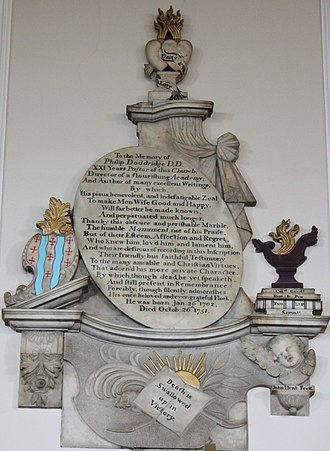 To the Memory of
Philip Doddridge D.D.
XXI Years Pastor of this Church,
Director of a flourishing Academy,
And Author of many excellent Writings,
By which
His pious benevolent, and indefatigable Zeal
To make Men Wise Good and Happy,
Will far better be made known,
And perpetuated much longer,
Than by this obscure and perishable Marble,
The humble Monument not of his Praise,
But of their Esteem, Affection and Regret,
Who knew him, lov'd him and lament him,
And who are desirous of recording in this Inscription
Their friendly but faithful Testimony
To the many amiable and Christian Virtues,
That adorn'd his more private Character,
By which, though dead, he yet speaketh,
And still present in Remembrance
Forcibly, though silently, admonisheth
His once beloved and ever-grateful Flock.
He was born June 26th 1702.
Died Octob. 26th 1751.
Death is
Swallowed
up in
Victory.